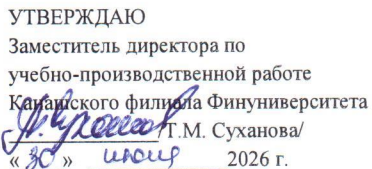 УТВЕРЖДАЮ
Заместитель директора по
учебно-производственной работе
Канашского филиала Финуниверситета
/Т.М. Суханова/
« 30 » 2026 г.